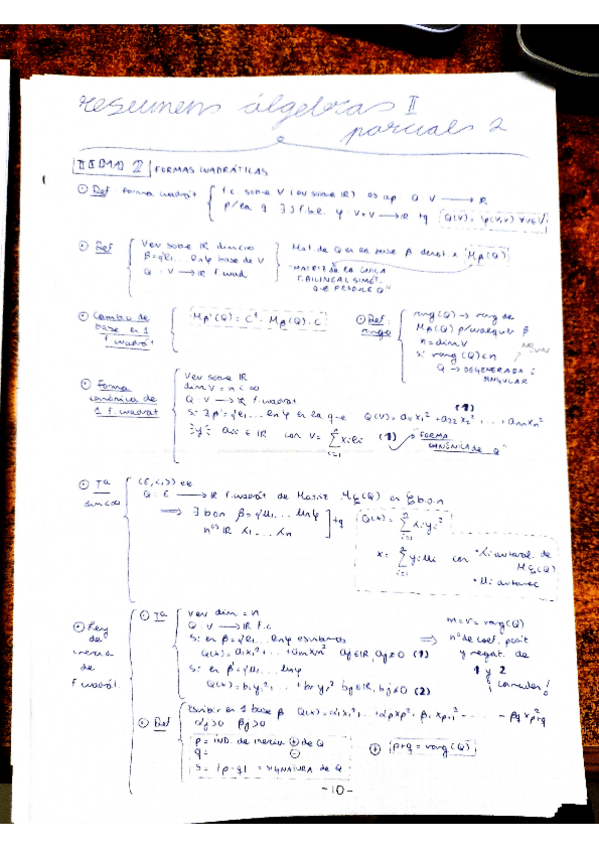 resumen álgebra II
parcial 2
TEMA 2 FORMAS CUADRÁTICAS
Def forma cuadrát
f.c. sobre V (ev sobre IR) es ap Q: V → IR
p/la q ∃ f.b.s. φ V×V → IR tq Q(v) = φ(v,v) ∀v∈V
Def
V ev sobre IR
base de V
Q: V → IR f. cuad
Mat de Q en la base β denot. x Mβ(Q)
"MATRIZ DE LA ÚNICA
F. BILINEAL SIMÉT.
QUE PRODUCE Q"
Cambio de
base en 1
f. cuadrát
Mβ'(Q) = Cᵗ · Mβ(Q) · C
Def
rango
rang(Q) → rang de
Mβ(Q) p/cualquier β
n = dim V
Si rang(Q) < n
Q → DEGENERADA o
SINGULAR
Forma
canónica de
1 f. cuadrat
V ev sobre IR
dim V = n < ∞
Q: V → IR f. cuadrat
Si ∃ β = {e1, ... en} en la que Q(v) = a11x1² + a22x2² + ... + annxn² (1)
aii ∈ IR con v = Σ xiei (1) → "FORMA
CANÓNICA de Q"
i=1
Ta
(E, <,>) ee
Q: E → IR f. cuadrát de Matriz Mξ(Q) en ξ bon
⟹ ∃ bon β = {u1, ... un} tq
nºs IR λ1 ... λn
Q(x) = Σ λi yi²
x = Σ yi ui con • λi autoval. de
Mξ(Q)
• ui autovec
Ley
de
inercia
de
f. cuadrát.
Ta
V ev dim = n
Q: V → IR f.c
Si en β = {e1, ... en} escribimos
Q(x) = a1x1² + ... + amxm² aj ∈ IR, aj ≠ 0 (1)
Si en β' = {u1, ... un}
Q(x) = b1y1² + ... + br yr² bj ∈ IR, bj ≠ 0 (2)
⟹
m = r = rang(Q)
nº de coef. posit
y negat. de
1 y 2
¡coinciden!
Def
Escribir en 1 base β Q(x) = α1x1² + ... + αpxp² - β1xp+1² - ... - βqxp+q²
αj > 0 βj > 0
p = IND. de inercia ⊕ de Q
q = ⊖
s = |p-q| = SIGNATURA de Q
p+q = rang(Q)
-10-